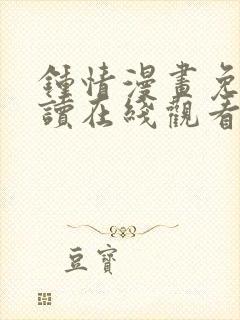 鍾情漫畫免
讀在綫觀看
豆寶